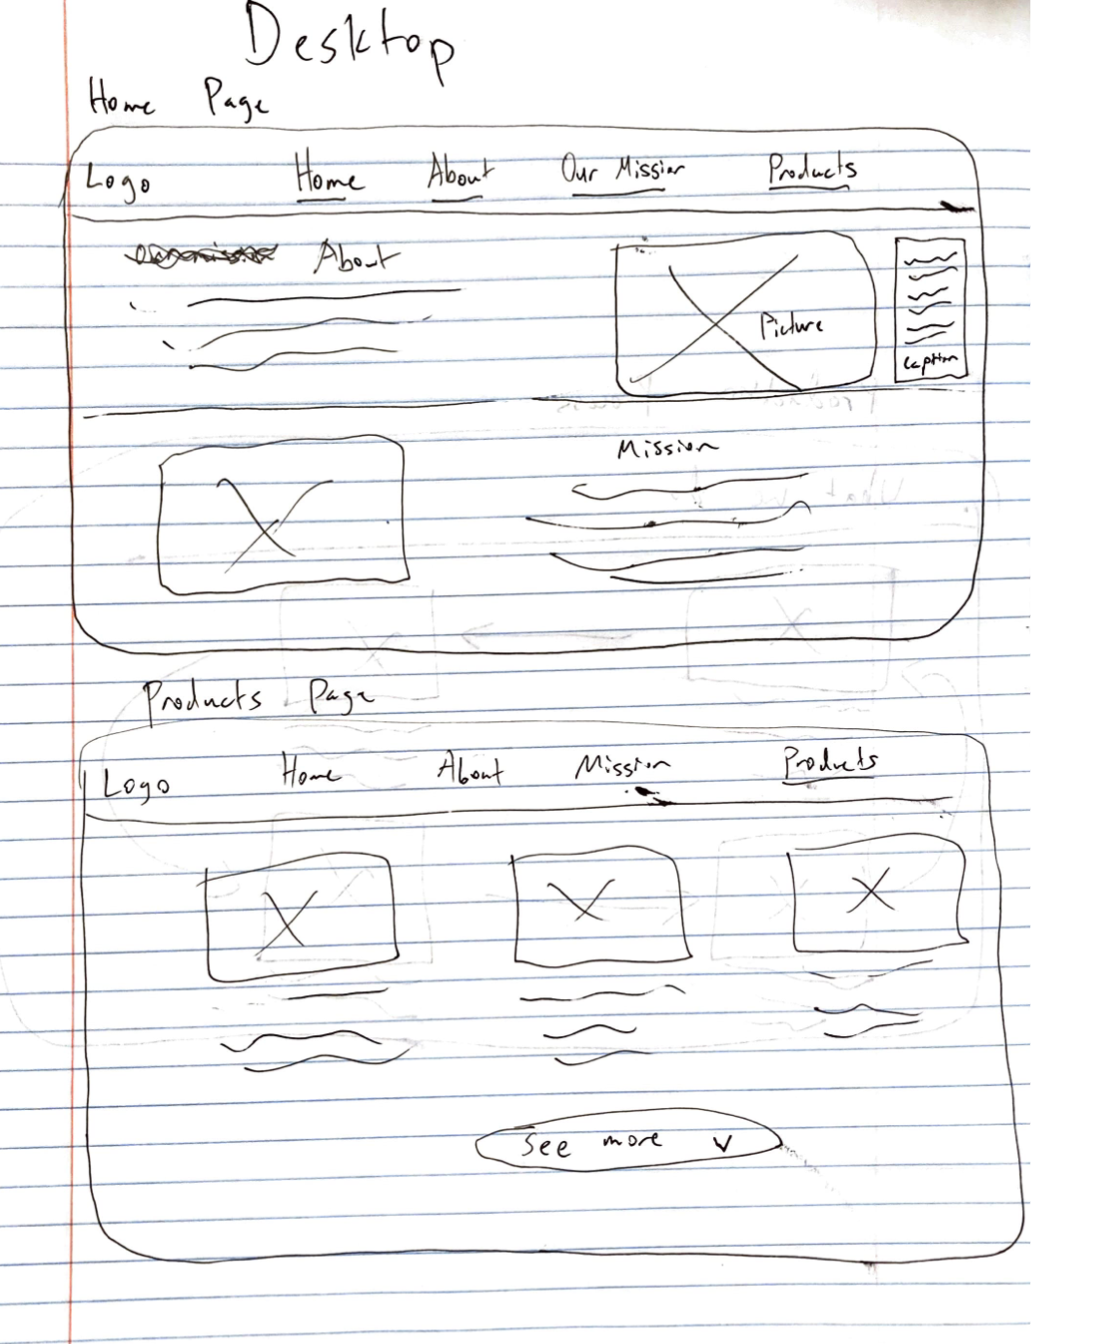 Desktop
Home Page
Logo Home About Our Mission Products
About
Picture
Caption
Mission
Products Page
Logo Home About Mission Products
See more